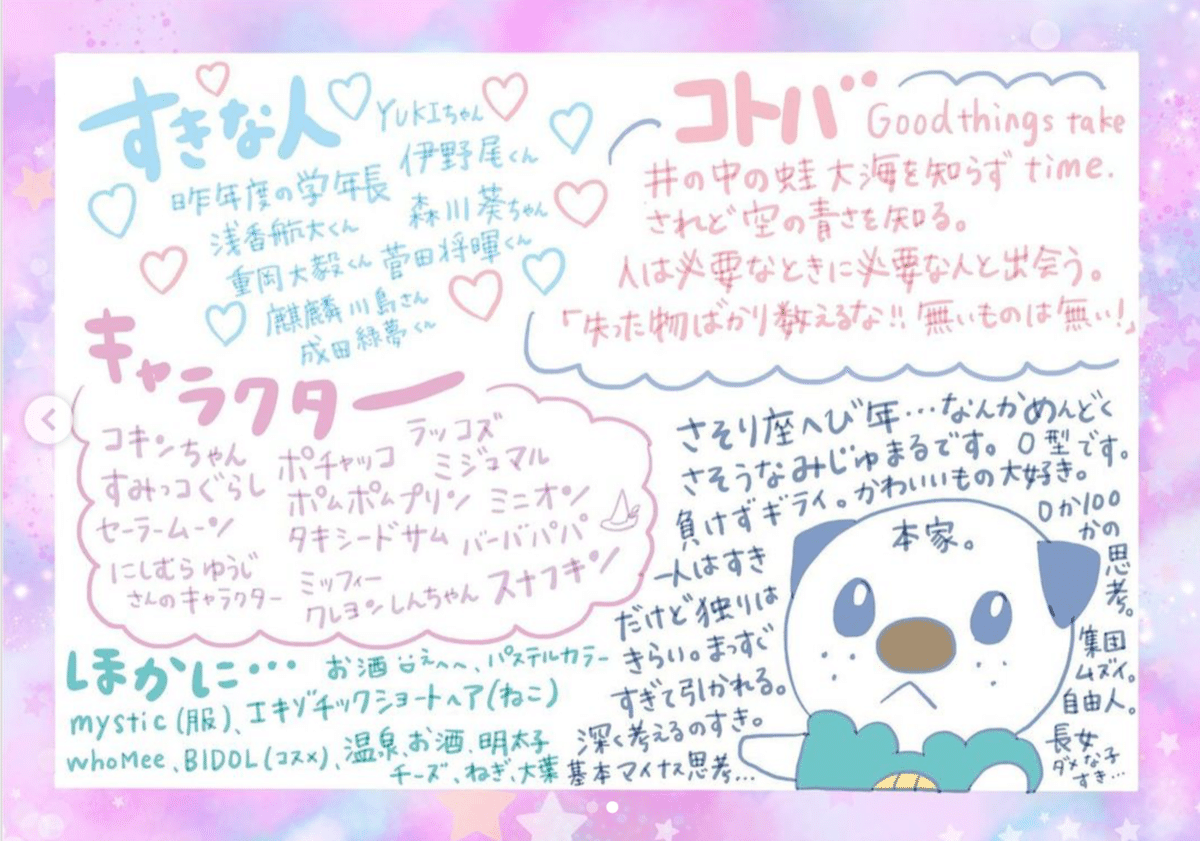 すきな人
YUKIちゃん
伊野尾くん
昨年度の学年長
森川葵ちゃん
浅香航大くん
重岡大毅くん
菅田将暉くん
麒麟川島さん
成田緑夢くん
コトバ
Good things take
time.
井の中の蛙大海を知らず
されど空の青さを知る。
人は必要なときに必要な人と出会う。
「失った物ばかり数えるな!! 無いものは無い!」
キャラクター
コキンちゃん
すみっコぐらし
セーラームーン
にしむらゆうじ
さんのキャラクター
ポチャッコ
ポムポムプリン
タキシードサム
ミッフィー
クレヨンしんちゃん
ラッコズ
ミジュマル
ミニオン
バーバパパ
スナフキン
さそり座へび年…なんかめんどく
さそうなみじゅまるです。O型です。
負けずギライ。かわいいもの大好き。
一人はすき
だけど独りは
きらい。まっすぐ
すぎて引かれる。
深く考えるのすき。
基本マイナス思考…
本家。
0か100
かの
思考。
集団
ムズイ。
自由人。
長女
ダメな子
すき…
ほかに…
お酒 えへへ、パステルカラー
mystic(服)、エキゾチックショートヘア(ねこ)
whoMee、BIDOL(コスメ)、温泉、お酒、明太子
チーズ、ねぎ、大葉